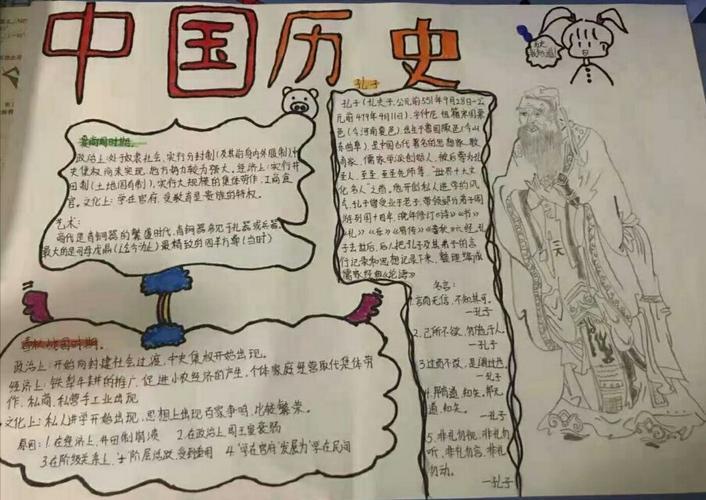 中国历史
历史
我知道!
夏商周时期。
政治上:处于奴隶社会,实行分封制
史集权尚未实现,地方势力较为强大。经济上:实行井
田制(土地国有制),实行大规模的集体劳作,工商食
官。文化上:学在官府,受教育是贵族的特权。
艺术:
商代是青铜器的繁盛时代,青铜器多见于礼器或兵器,
最大的是司母戊鼎(迄今为止)最精致的四羊方尊(当时)
孔子
孔子(孔夫子,公元前551年9月28日-公
元前479年4月11日),字仲尼,祖籍宋国栗
邑(今河南夏邑),出生于鲁国陬邑(今山
东曲阜),是中国古代著名的思想家、教
育家,儒家学派创始人,被后帝为孔
圣人、至圣、至圣先师等,“世界十大文
化名人”之首。他开创私人讲学的风
气,孔子曾受业于老子,带领部分弟子周
游列国十四年,晚年修订《诗》《书》
《礼》《乐》《易传》《春秋》六经,孔
子去世后,后人把孔子及其弟子的言
行记录和思想记录下来,整理编成
儒家经典《论语》
名言:
1.言而无信,不知其可。
—孔子
2.己所不欲,勿施于人。
—孔子
3.过而不改,是谓过也。
—孔子
道,知矣。
道,知矣。
—孔子
5.非礼勿视,非礼勿
听,非礼勿言,非礼
勿动。
—孔子
春秋战国时期。
政治上:开始向封建社会过渡,中史集权开始出现。
经济上:铁犁牛耕的推广,促进小农经济的产生,个体家庭经营取代集体劳
作,私商,私营手工业出现
文化上:私人讲学开始出现,思想上出现百家争鸣,比较繁荣。
原因:1.在经济上,井田制崩溃 2.在政治上周王室衰弱
3.在阶级关系上,士阶层活跃,受到重用 4.“学在官府”发展为“学在民间”